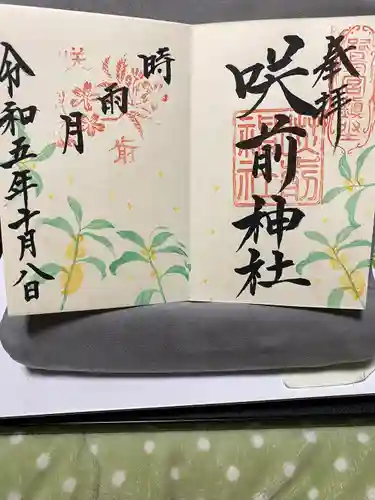 奉拝
咲前神社
時雨月
咲前
令和五年十月八日